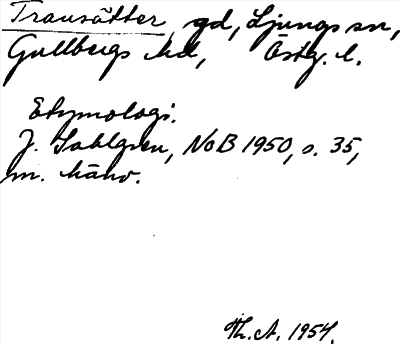 Transätter, gd, Ljungs sn,
Gullbergs hd, Östg. l.
Etymologi.
J. Sahlgren, NoB 1950, s. 35,
m. hänv.
Th. A. 1954.